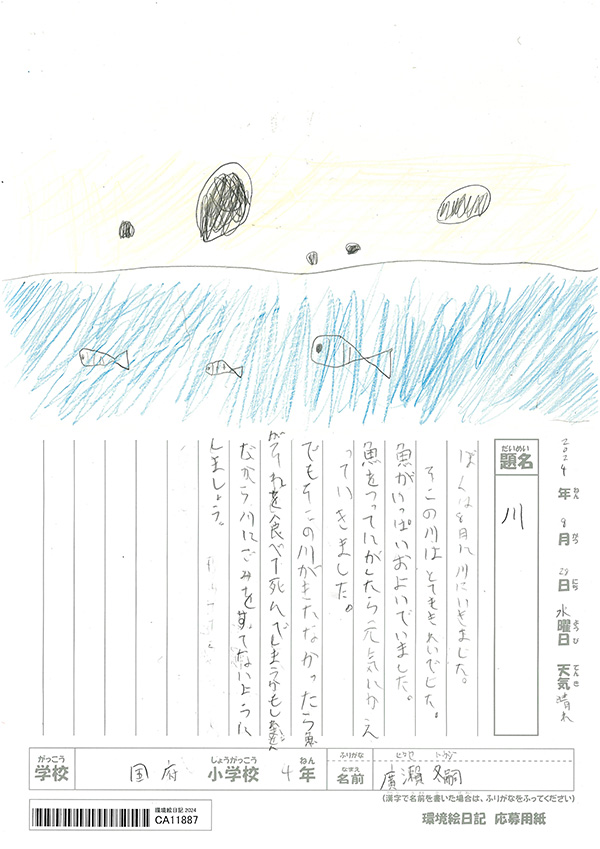 2024年8月29日水曜日 天気晴れ
だいめい
題名
川
ぼくは8月に川にいきました。
そこの川はとてもきれいでした。
魚がいっぱいおよいでいました。
魚をつってにがしたら元気にかえ
っていきました。
でもそこの川がきたなかったら魚
がそれを食べて死んでしまうかもしれません
だから川にごみをすてないように
しましょう。
がっこう しょうがっこう ねん
学校 国府 小学校 4年
ふりがな ヒロセ トウジ
なまえ
名前 廣瀬 冬嗣
(漢字で名前を書いた場合は、ふりがなをふってください)
環境絵日記 2024
CA11887
環境絵日記 応募用紙